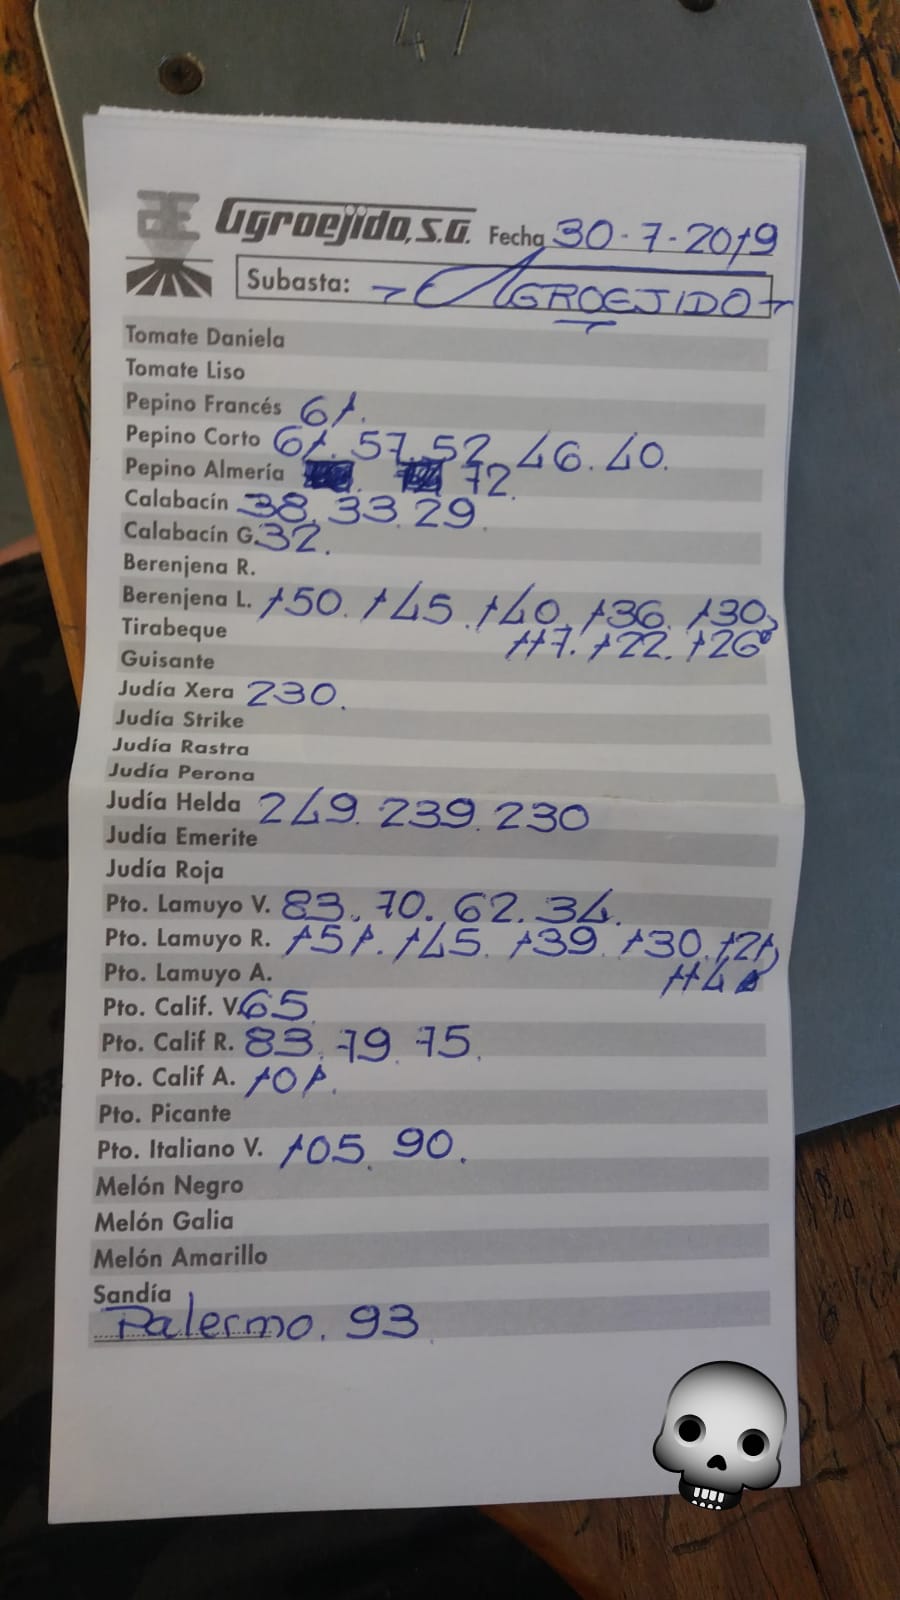 47
AE Agroejido, S.A. Fecha 30-7-2019
Subasta: AGROEJIDO
Tomate Daniela
Tomate Liso
Pepino Francés 61.
Pepino Corto 61. 57. 52. 46. 40.
Pepino Almería 72.
Calabacín 38. 33. 29.
Calabacín G. 32.
Berenjena R.
Berenjena L. 150. 145. 140. 136. 130,
117. 122. 126
Tirabeque
Guisante
Judía Xera 230.
Judía Strike
Judía Rastra
Judía Perona
Judía Helda 249. 239. 230
Judía Emerite
Judía Roja
Pto. Lamuyo V. 83. 70. 62. 34.
Pto. Lamuyo R. 151. 145. 139. 130. 121,
114
Pto. Lamuyo A.
Pto. Calif. V. 65
Pto. Calif R. 83. 79. 75.
Pto. Calif A. 101.
Pto. Picante
Pto. Italiano V. 105. 90.
Melón Negro
Melón Galia
Melón Amarillo
Sandía
Palermo. 93